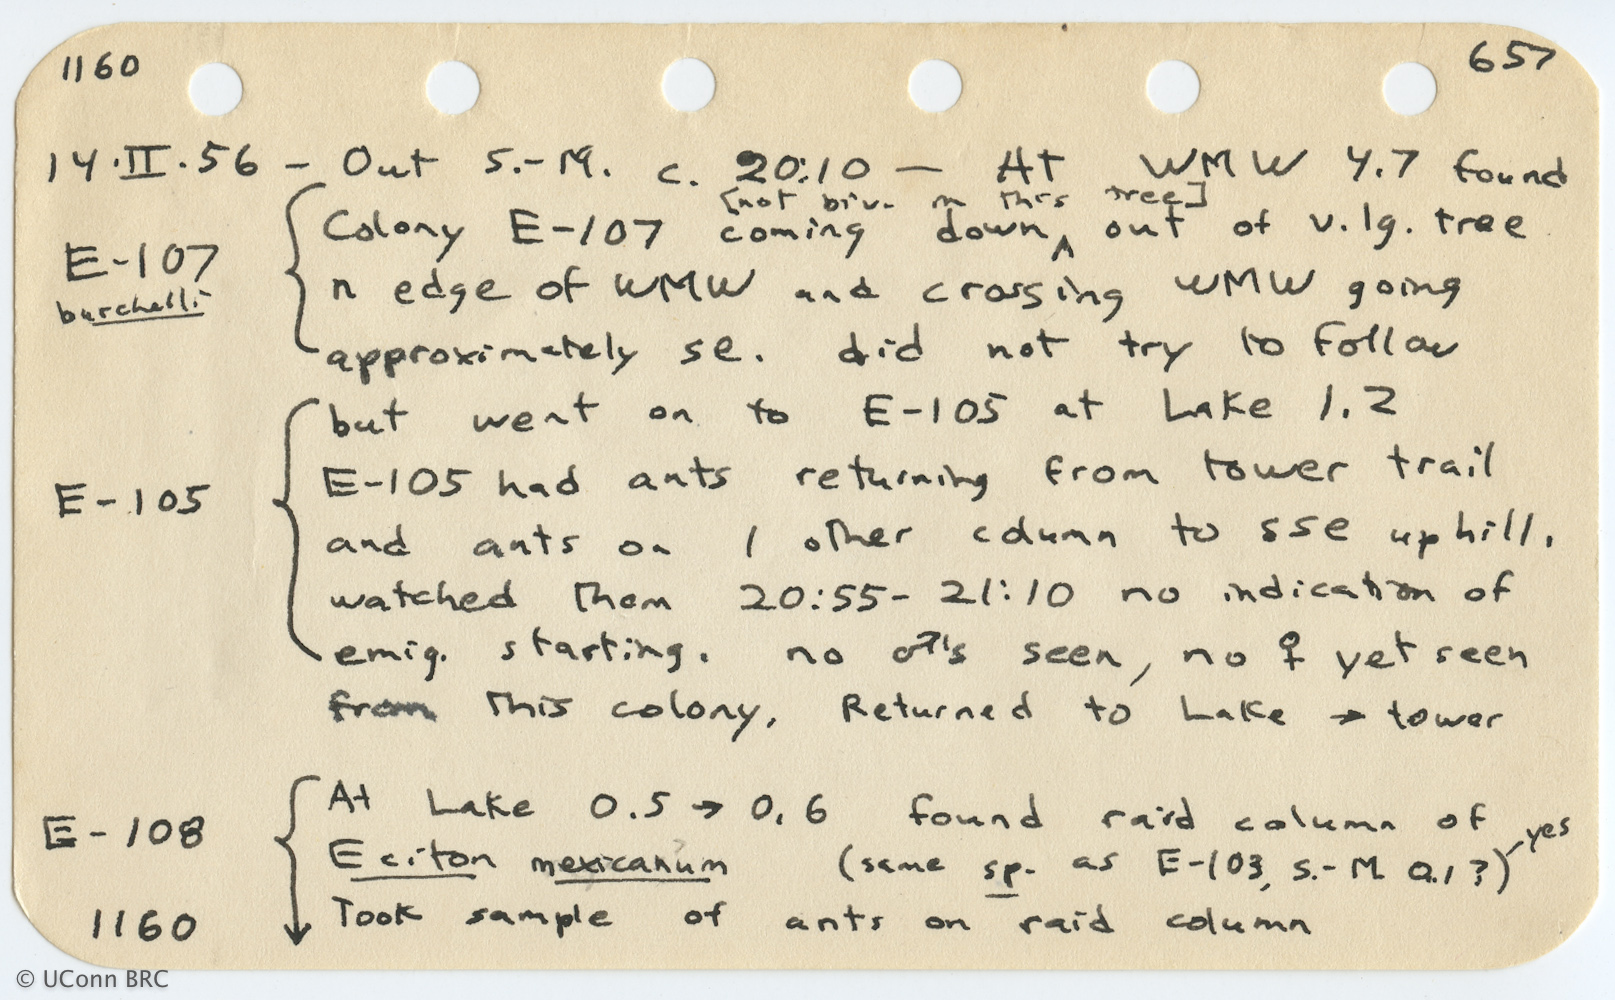 1160
657
14.II.56 – Out S.-M. c. 20:10 — At WMW 4.7 found
[not biv. in this tree]
Colony E-107 coming down ^ out of v. lg. tree
E-107
burchelli
n edge of WMW and crossing WMW going
approximately se. did not try to follow
but went on to E-105 at Lake 1.2
E-105
E-105 had ants returning from tower trail
and ants on 1 other column to sse uphill.
watched them 20:55 - 21:10 no indication of
emig. starting. no ♂'s seen, no ♀ yet seen
from this colony. Returned to Lake → tower
E-108
At Lake 0.5 → 0.6 found raid column of
Eciton mexicanum (same sp. as E-103, S.-M. 0.1?) - yes
Took sample of ants on raid column
1160
© UConn BRC